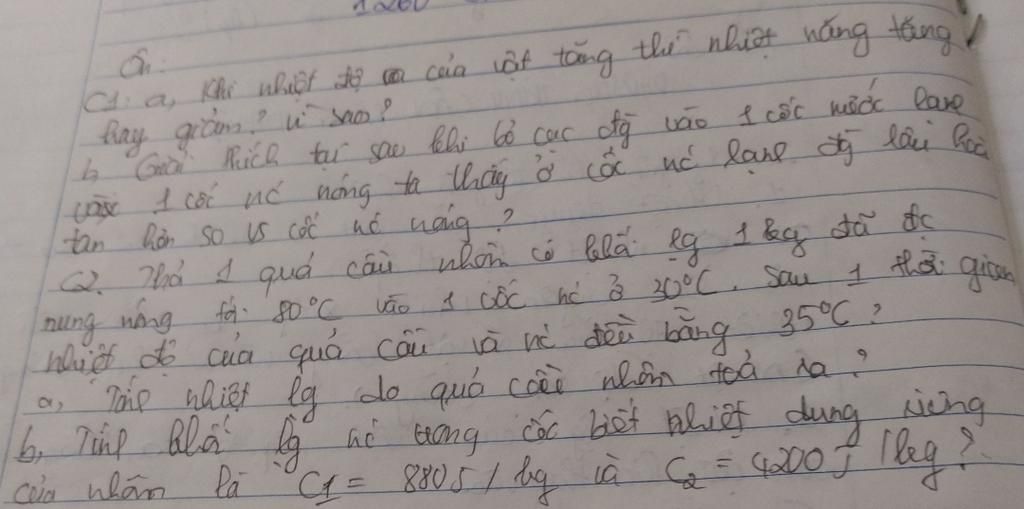 Ôn:
C1: a, Khi nhiệt độ của vật tăng thì nhiệt năng tăng
hay giảm? Vì sao?
b, Giải thích tại sao khi bỏ cục đg vào 1 cốc nước lạnh
1 cốc nc nóng ta thấy ở cốc nc lạnh đg lâu hoà
tan hơn so vs cốc nc nóng?
C2. Thả 1 quả cầu nhôm có khố lg 1 kg đã đc
nung nóng tới 80°C vào 1 cốc nc ở 30°C. Sau 1 thời gian
nhiệt độ của quả cầu và nc đều bằng 35°C?
a, Tính nhiệt lg do quả cầu nhôm toả ra?
b, Tính khố lg nc trong cốc biết nhiệt dung riêng
của nhôm là C1 = 880J/kg và C2 = 4200J/kg?